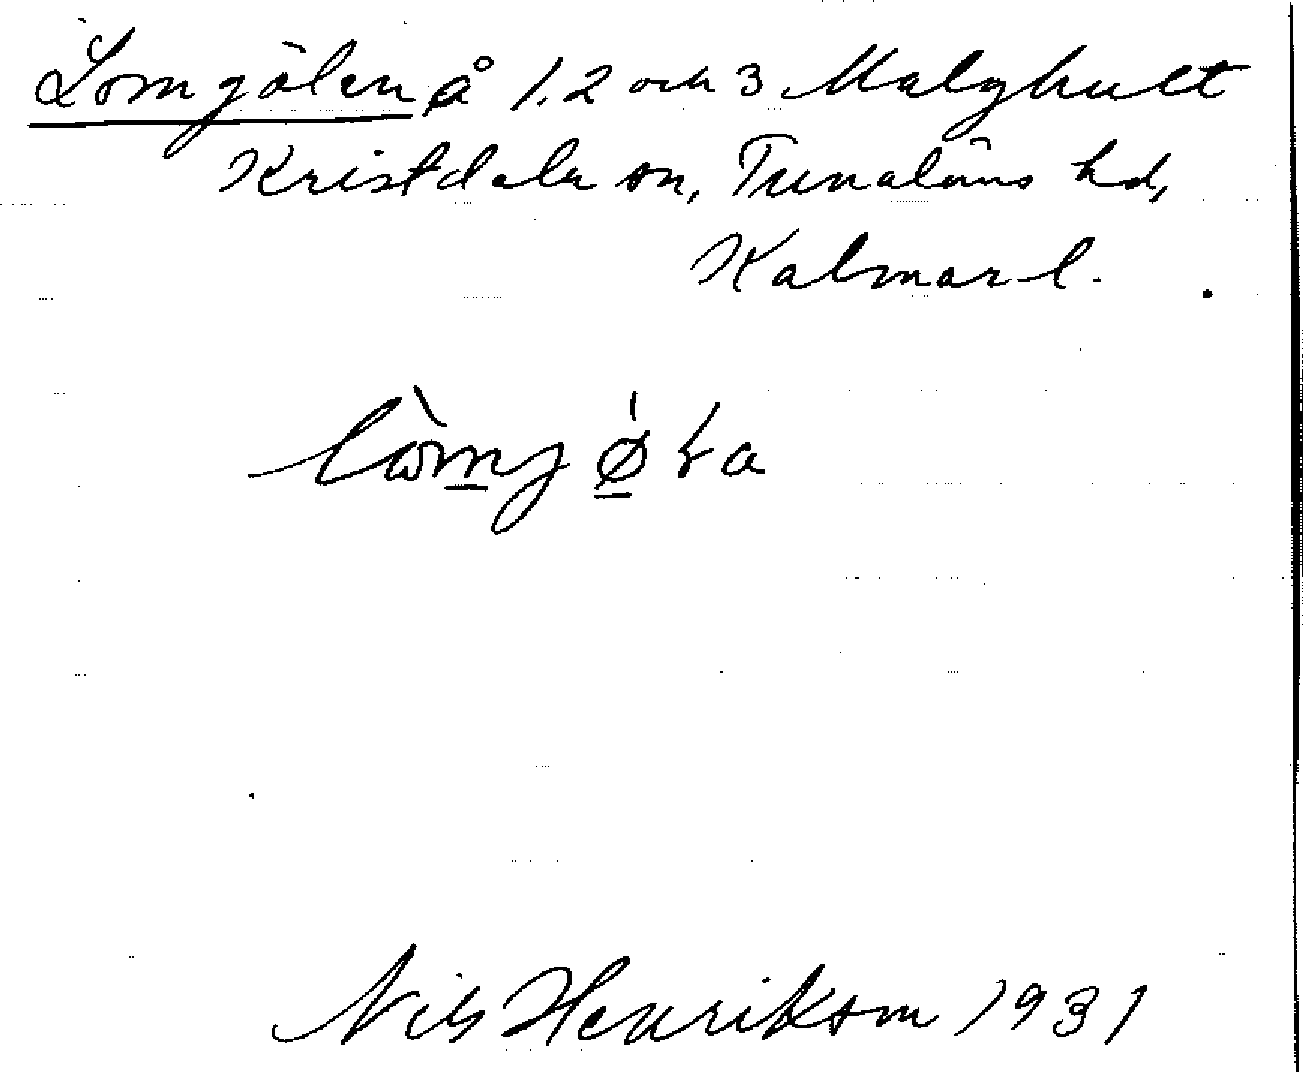 Lomgölen å 1.2 och 3 Malghult
Kristdala sn, Tunaläns hd,
Kalmar l.
Nils Henrikson 1931